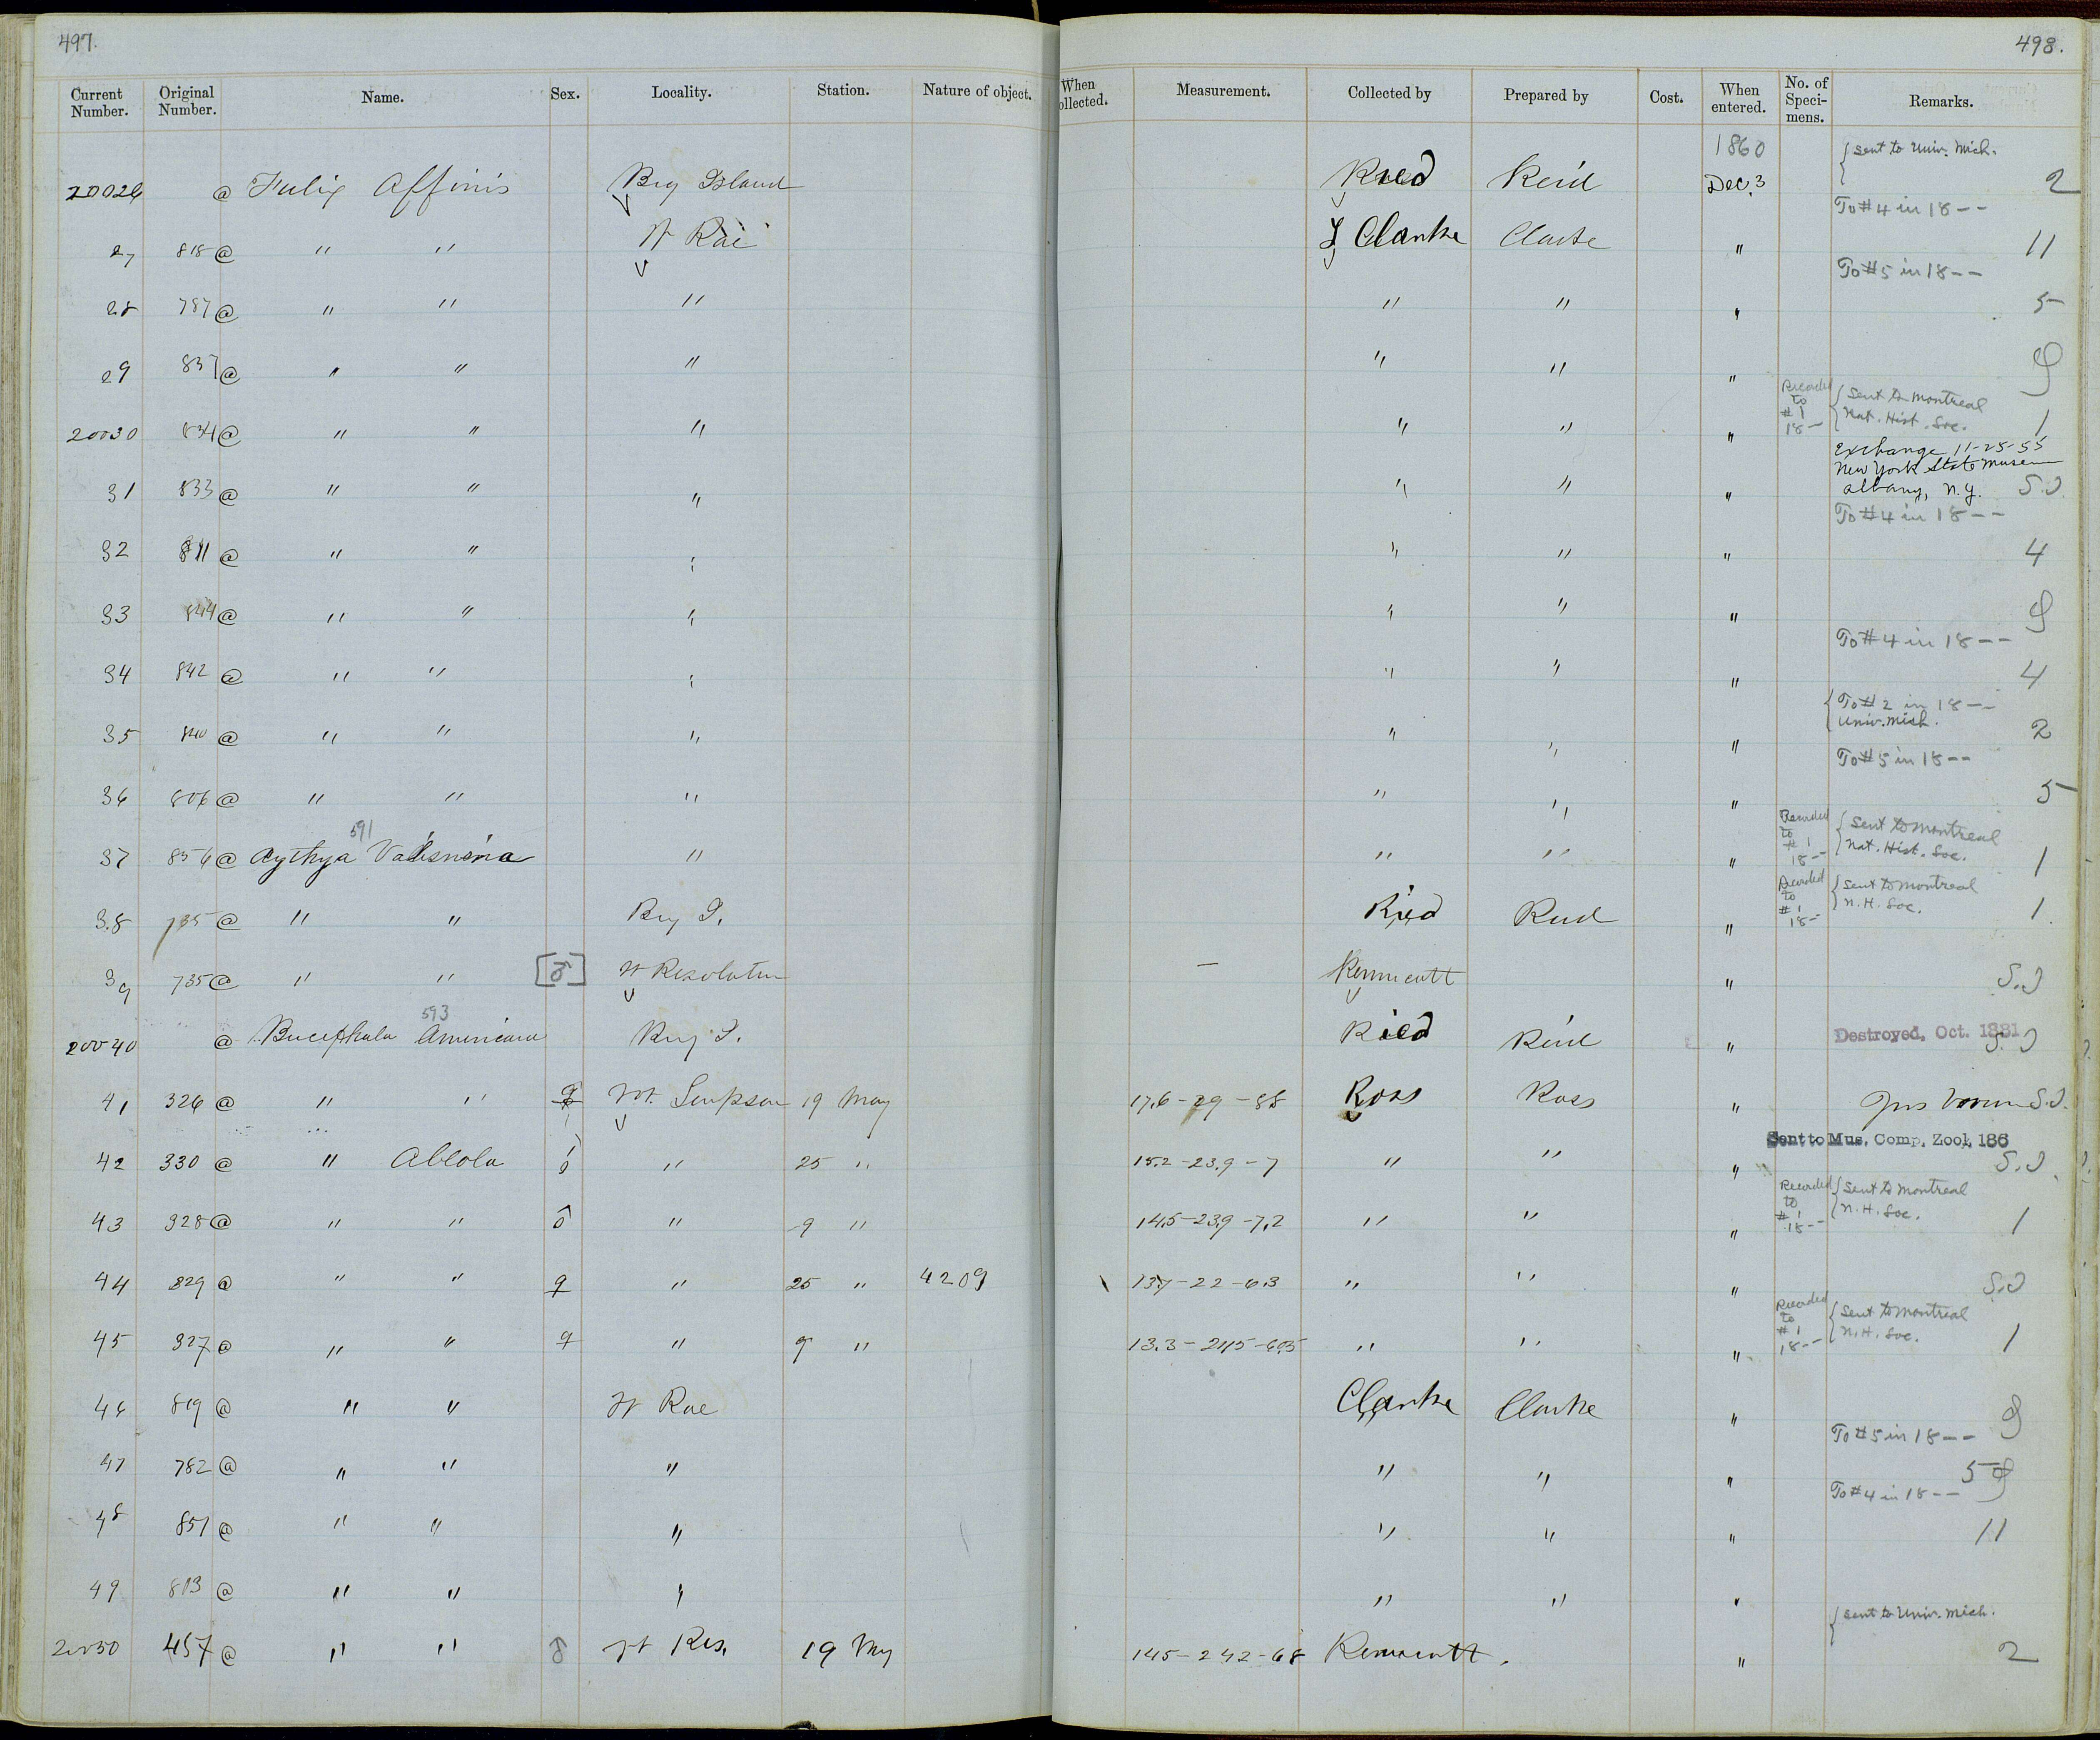 497.
498.
Current Number. Original Number. Name. Sex. Locality. Station. Nature of object. When ollected. Measurement. Collected by Prepared by Cost. When entered. No. of Speci-mens. Remarks.
1860 { Sent to Univ. Mich.
20026 @ Fulix Affinis Big Island Ried Reid Dec. 3 2
To #4 in 18--
27 818 @ " " Ft Rae L Clarke Clarke " 11
To #5 in 18--
28 787 @ " " " " " " 5
29 837 @ " " " " " "
Recorded to #1 18- { Sent to Montreal Nat. Hist. Soc.
20030 834 @ " " " " " " 1
Exchange 11-25-55
New York State Museum
31 833 @ " " " " " " Albany, N.Y. S.I.
To #4 in 18--
32 811 @ " " " " " " 4
33 844 @ " " " " " "
To #4 in 18--
34 842 @ " " " " " " 4
{ To #2 in 18-- Univ. Mich.
35 840 @ " " " " " " 2
To #5 in 18--
36 806 @ " " " " " " 5
591
Recorded to #1 18-- { Sent to Montreal Nat. Hist. Soc.
37 856 @ Aythya Valisneria " " " " 1
Recorded to #1 18- { Sent to Montreal N.H. Soc.
38 735 @ " " Big I. Ried Reid " 1.
39 735 @ " " [♂] Ft Resolution — Kennicutt " S.I
593
20040 @ Bucephala Americana Big I. Ried Reid " Destroyed, Oct. 1881 S.I
41 326 @ " " ♀ Ft. Simpson 19 May 17.6-29-88 Ross Ross " S.I.
Sent to Mus. Comp. Zool. 186
42 330 @ " Albeola ♂ " 25 " 15.2-23.9-7 " " " S.I.
Recorded to #1 18-- { Sent to Montreal N.H. Soc.
43 328 @ " " ♂ " 9 " 14.5-23.9-7.2 " " " 1
44 329 @ " " ♀ " 25 " 4209 13.7-22-6.3 " " " S.I
Recorded to #1 18-- { Sent to Montreal N.H. Soc.
45 327 @ " " ♀ " 9 " 13.3-21.5-6.5 " " " 1
46 819 @ " " Ft Rae Clarke Clarke "
To #5 in 18--
47 782 @ " " " " " " 5
To #4 in 18--
48 851 @ " " " " " " 11
49 813 @ " " " " " "
{ Sent to Univ. Mich.
20050 457 @ " " ♂ Ft Res. 19 My 145-242-68 Kennicutt. " 2